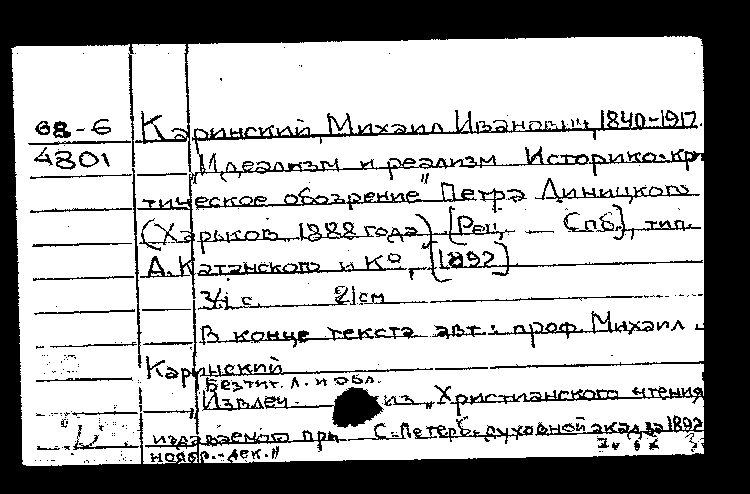 68-6 Каринский, Михаил Иванович, 1840-1917.
4801 „Идеализм и реализм Историко-кри
тическое обозрение" Петра Линицкого
(Харьков 1888 года) [Рец. Спб.], тип.
А. Катанского и Кº, [1892]
с. 21см
В конце текста авт.: проф. Михаил
Каринский
Без тит. л. и обл.
Извлеч. из „Христианского чтения
издаваемого при С.-Петерб. духовной акад. за 1892
ноябр.-дек."